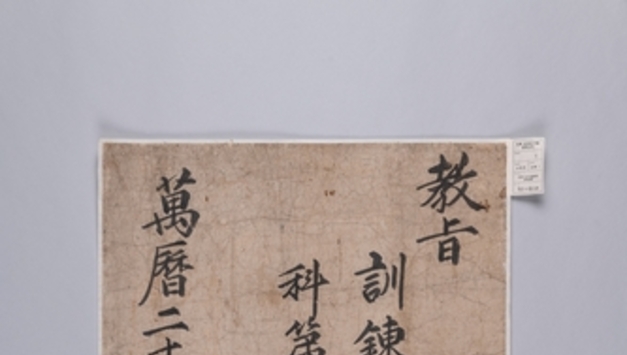 教旨
訓鍊
科第
萬曆二十